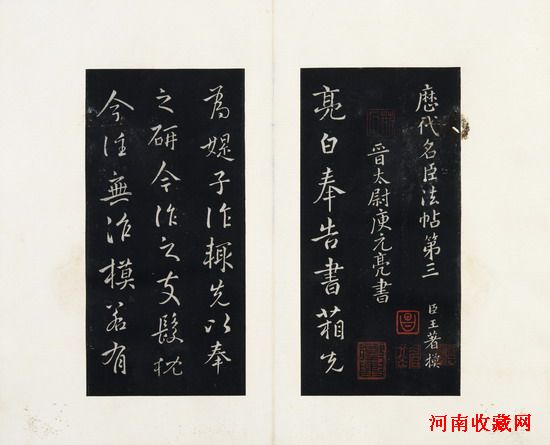 歷代名臣法帖第三 臣王著模
晉太尉庾元亮書
亮白奉告書箱先
為媞子作輒先以奉
之研今作之支髮枕
今往無作模若有
河南收藏网